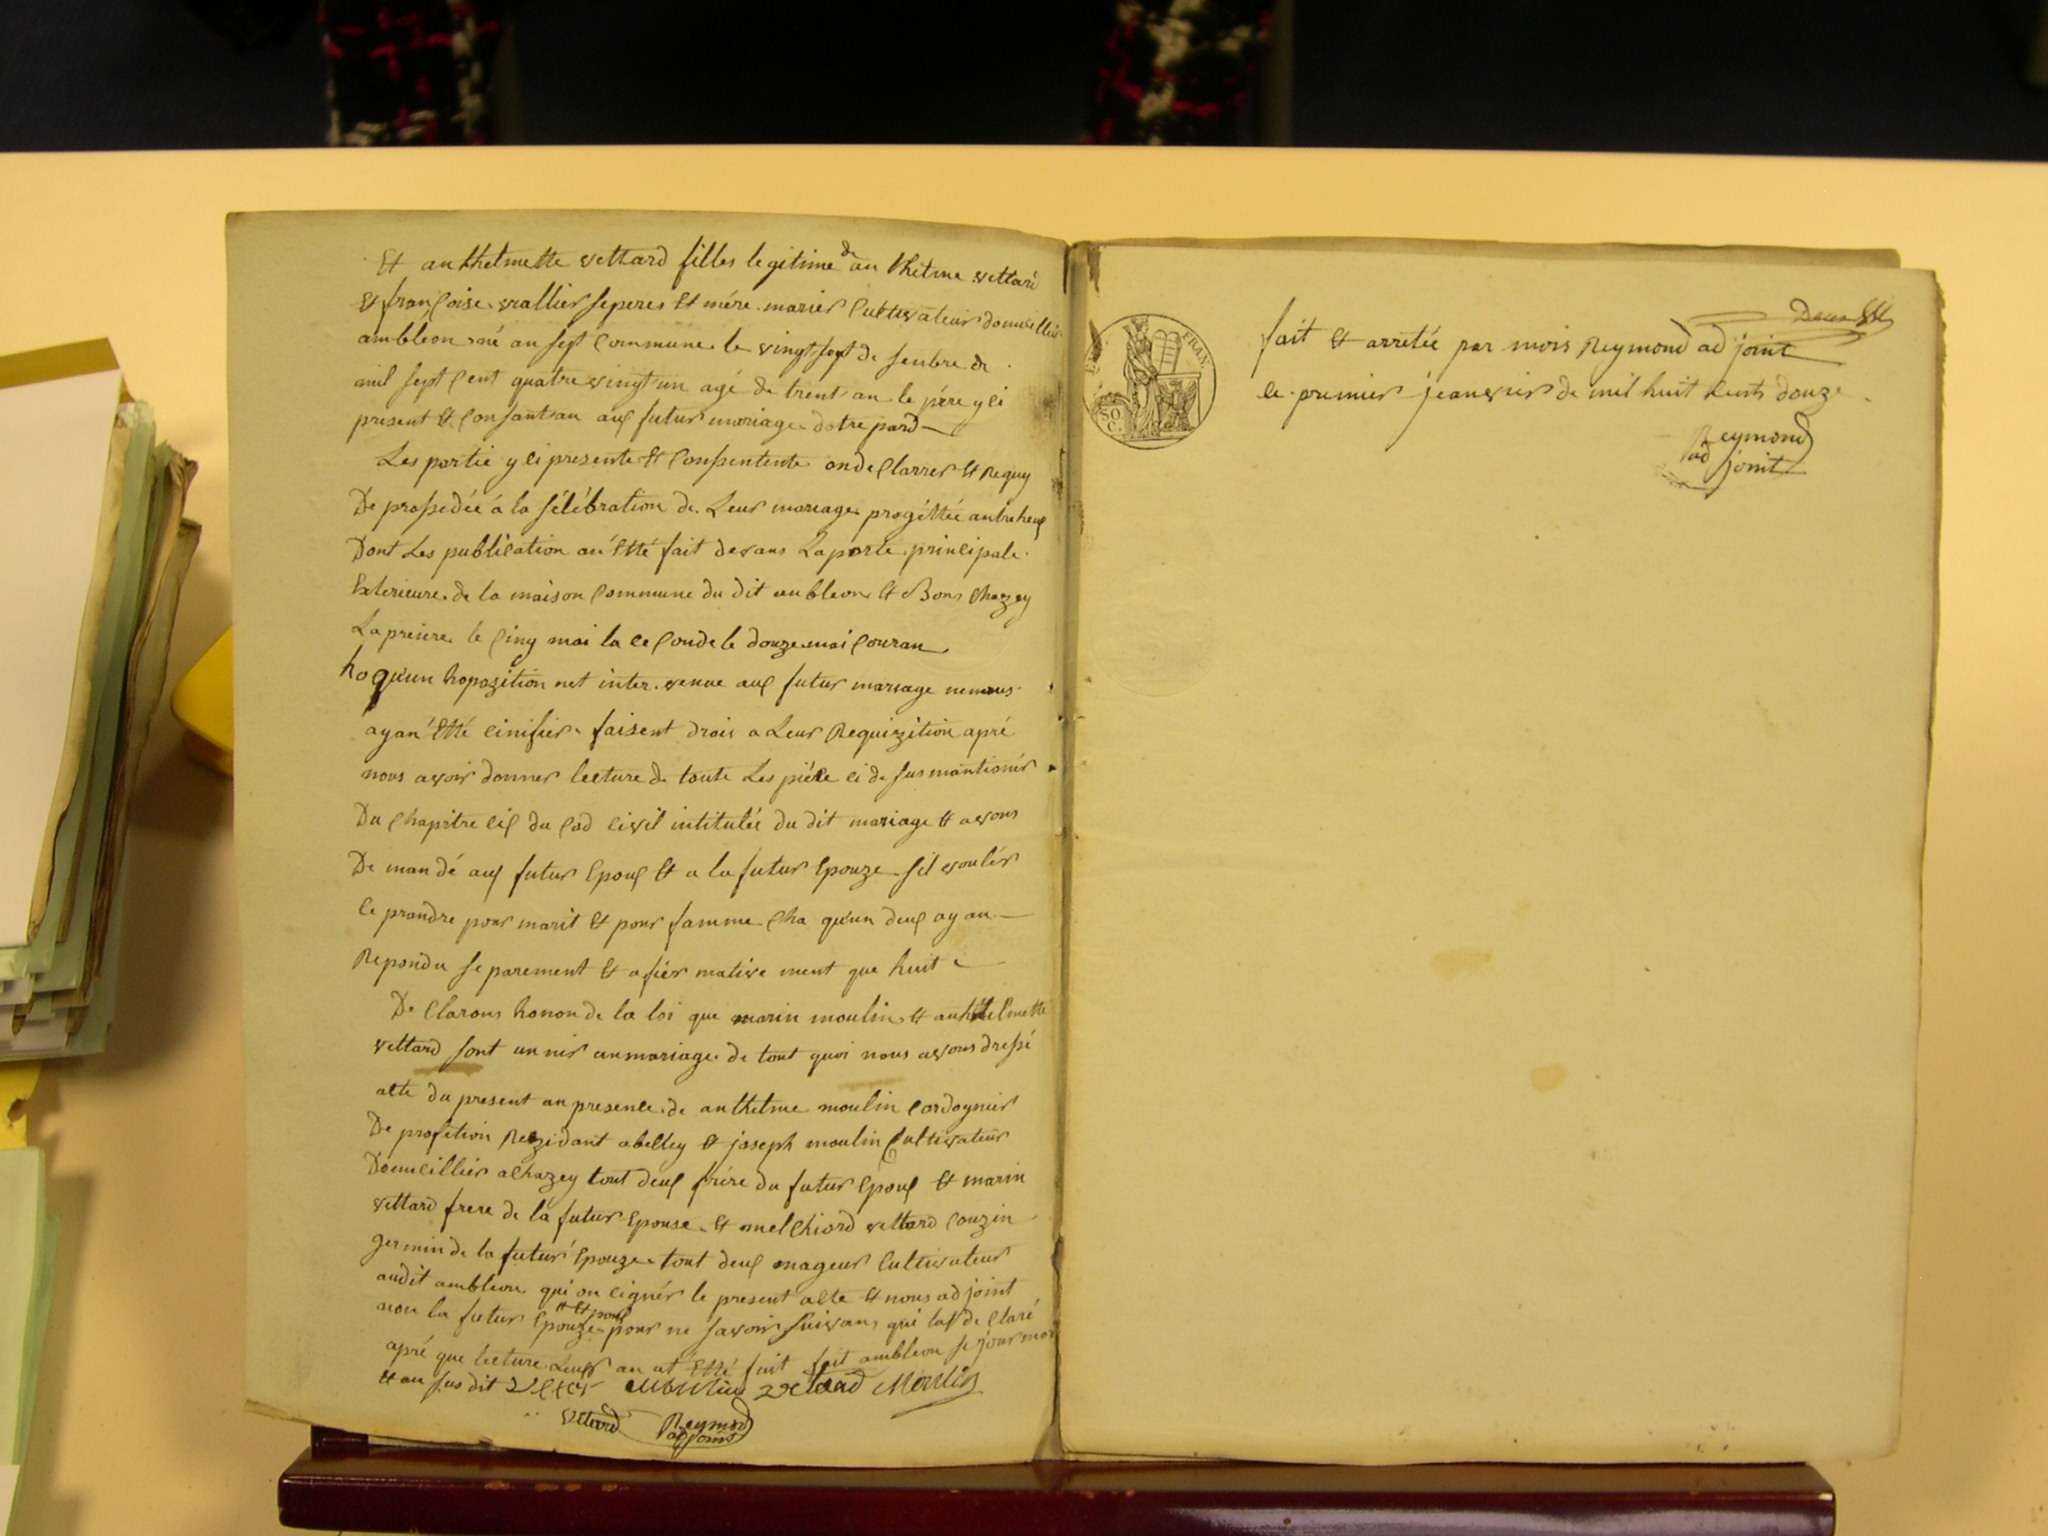 Et anthelmette vettard filles legitime de an thelme vettard
et françoise vrallier se peres Et mére marier Cultivateur domicillier
ambleon né au sept Commune le vingt sept de senbre de
mil sept Cent quatre vingt un agé de trent an le pére y ci
present et Consantan auſ futur mariage dotre pard
Les partie y ci presente Et Consentente on de Clarrer Et Requy
De prossedée à la sélébration de Leur mariage progéttée antre heuſ
Dont Les publication an Etté fait devans La porte principale
Exterieure de la maison Commune du dit anbleon et Bons Chazey
La preiere le Cinq mai la ce Conde le douze mai Couran
ho qu'un hopozition net inter venue auſ futur mariage ne nous
ayan Etté cinifier faisent drois a Leur Requizition apré
nous avoir donner lecture de toute Les piéce ci de sus mantionér
Du Chapitre ciſ du Cod civil intitulér du dit mariage et avons
De mandé auſ futur Epouſ Et a la futur Epouze sil voulér
ce prandre pour marit Et pour famme Cha qu'un deuſ ayan
Repondu se parement Et afier mative ment que huit
De Clarons honon de la loi que marin moulin Et anthelmette
vettard sont unnir an mariage de tout quoi nous avons dressé
acte du present an presence de anthelme moulin Cordognier
De profetion Rezidant a belley Et joseph moulin Cultivateur
Domicillier a Chazey tout deuſ frére du futur Epouſ Et marin
vettard frere de la futur Epouse Et melchiord vettard Couzin
germin de la futur Epouze tout deuſ mageur Cultivateur
audit ambleon qui on cignér le present acte Et nous ad joint
non la futur Epouze pour ne savoir suivans qui laſ de Claré
apré que lecture Leur an at Etté fait fait ambleon se jour moi
Et an sus dit vettard Moulin
vettard Reymond ad joint
Deuſ
fait Et arretée par mois Reymond ad joint
ce premier jeanvier de mil huit Cents douze
Reymond
ad joint
FRAN.
50
C.